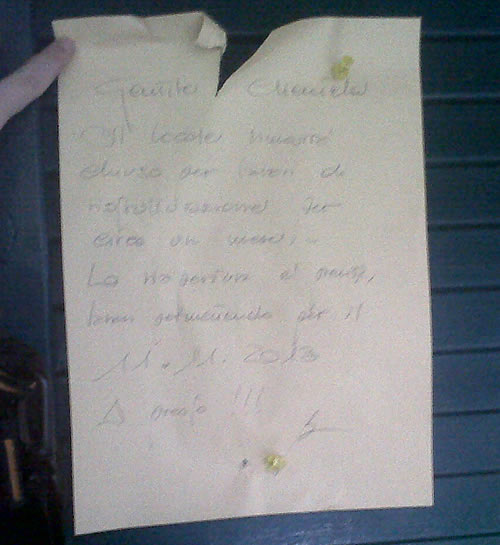 Gentile Clientela
Il locale rimarrà
chiuso per lavori di
ristrutturazione per
circa un mese...
La riapertura al pubblico,
lavori permettendo per il
11.11.2013
A presto !!!